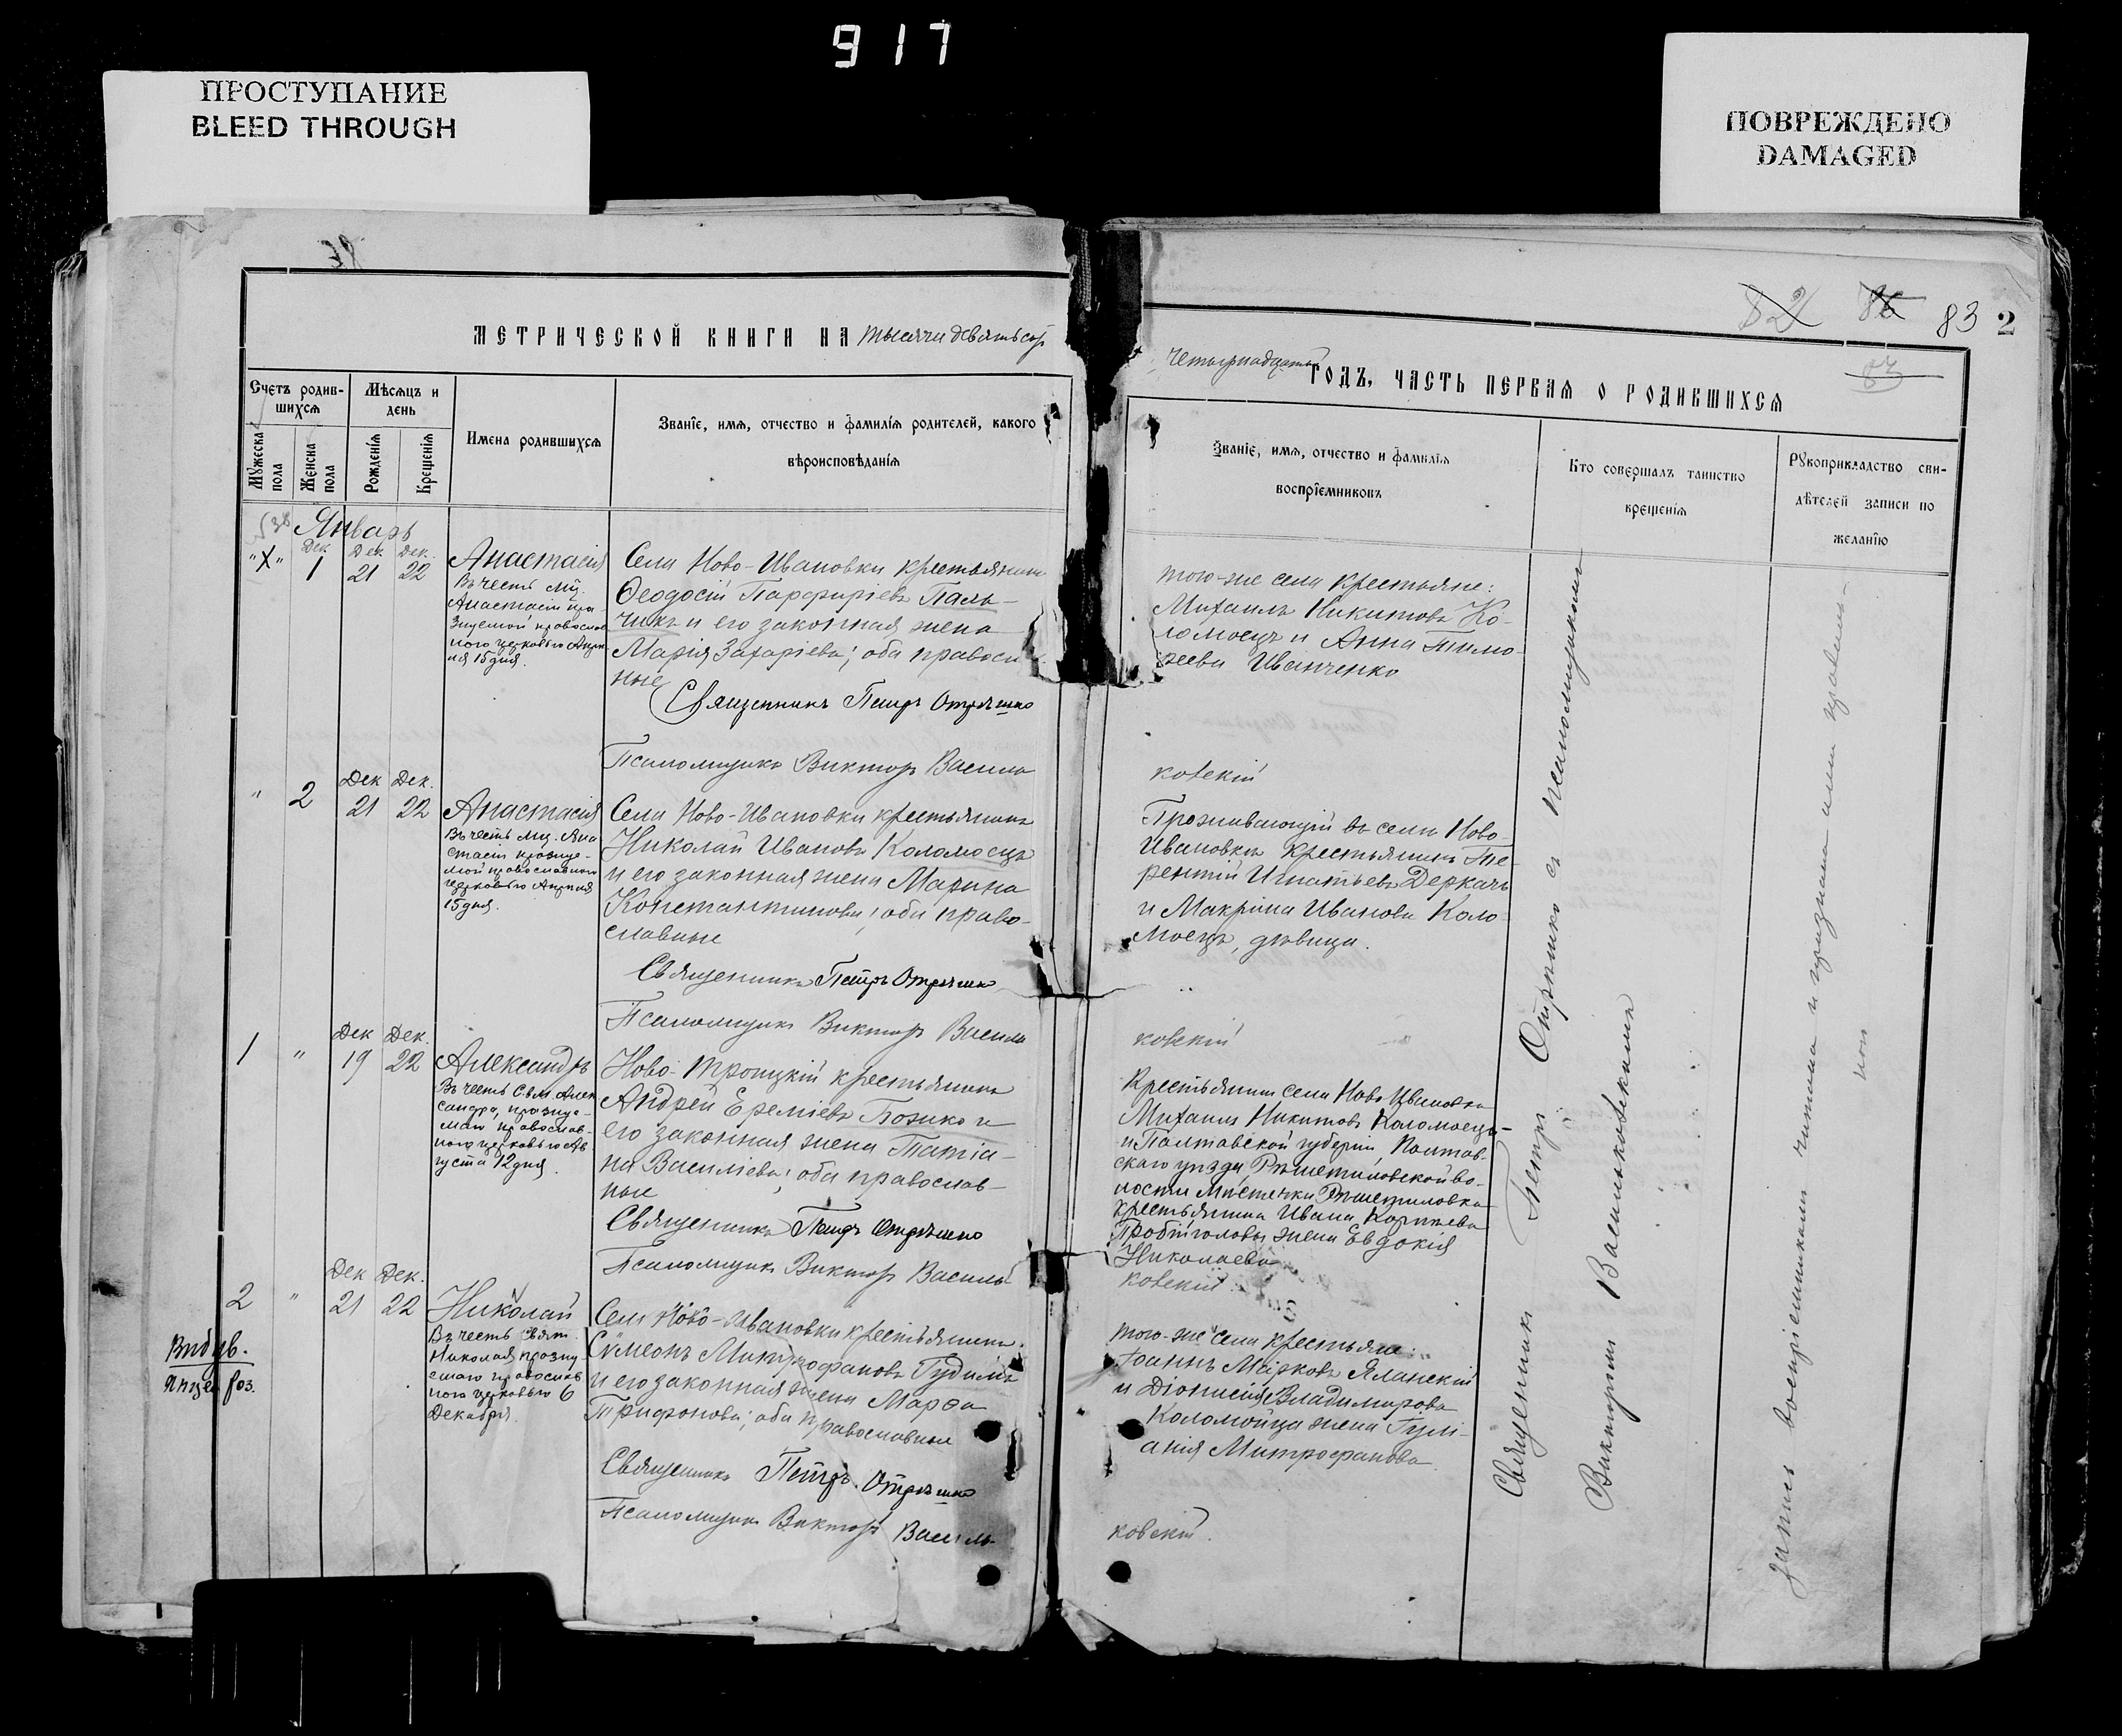 917
ПРОСТУПАНИЕ
BLEED THROUGH
ПОВРЕЖДЕНО
DAMAGED
83 2
МЕТРИЧЕСКОЙ КНИГИ НА тысяча девятьсот
четырнадцатый ГОДЪ, ЧАСТЬ ПЕРВАЯ О РОДИВШИХСЯ
Счетъ родив-
шихся
Мужеска пола
Женска пола
Мѣсяцъ и
день
Рожденія
Крещенія
Имена родившихся
Званіе, имя, отчество и фамилія родителей, какого
вѣроисповѣданія
Званіе, имя, отчество и фамилія
воспріемниковъ
Кто совершалъ таинство
крещенія
Рукоприкладство сви-
дѣтелей записи по
желанію
Январь
Дек. Дек. Дек.
1 21 22
Анастасія
Въ честь мц.
Анастасіи пра-
зднуемой православ
ного церковью Апре
ля 15 дня.
Села Ново-Ивановки крестьянинъ
Ѳеодосій Парфиріевъ Паль-
чикъ и его законная жена
Марія Захаріева; оба правосл
ные
Священникъ Петръ Отрѣшко
Псаломщикъ Викторъ Василь
ковскій
того-же села крестьяне:
Михаилъ Никитовъ Ко-
ломоецъ и Анна Тимо-
феева Иванченко
" 2
Дек Дек.
21 22
Анастасія
Въ честь мц. Ана
стасіи празднуе-
мой православною
церковью Апреля
15 дня.
Села Ново-Ивановки крестьянинъ
Николай Ивановъ Коломоецъ
и его законная жена Марина
Константинова; оба право-
славные
Священникъ Петръ Отрѣшко
Псаломщикъ Викторъ Василь
ковскій
Проживающій въ селѣ Ново-
Ивановкѣ крестьянинъ Те-
рентій Игнатьевъ Деркачъ
и Макрина Иванова Коло-
моецъ, дѣвица.
1 "
Дек Дек.
19 22
Александръ
Въ честь Св. М. Алек
сандра, празднуе-
маго православ-
ного церковью Ав
густа 12 дня.
Ново-Троицкій крестьянинъ
Андрей Ереміевъ Бозико и
его законная жена Татіа-
на Василіева; оба православ-
ные
Священникъ Петръ Отрѣшко
Псаломщикъ Викторъ Василь
ковскій
Крестьянин села Ново Ивановки
Михаилъ Никитовъ Коломоецъ
и Полтавской губерніи, Полтав-
скаго уѣзда Рѣшетиловской во-
лости Мѣстечка Рѣшетиловка
крестьянина Ивана Корнѣева
жена Евдокія
Николаева
2 "
Дек Дек.
21 22
Николай
Въ честь Свят.
Николая празну-
емаго православ
ного церковью 6
Декабря.
Села Ново-Ивановки крестьянинъ
Сѵмеонъ Митрофановъ Гудимъ
и его законная жена Марѳа
Трифонова; оба православные
Священникъ Петръ. Отрѣшко
Псаломщикъ Викторъ Василь-
ковскій.
того-же села крестьяне:
Іоаннъ Марковъ Яланскій
и Діонисія Владимирова
Коломойца жена Гулі-
анія Митрофанова
Священникъ Петръ Отрѣшко съ псаломщикомъ
Викторомъ Васильковскимъ